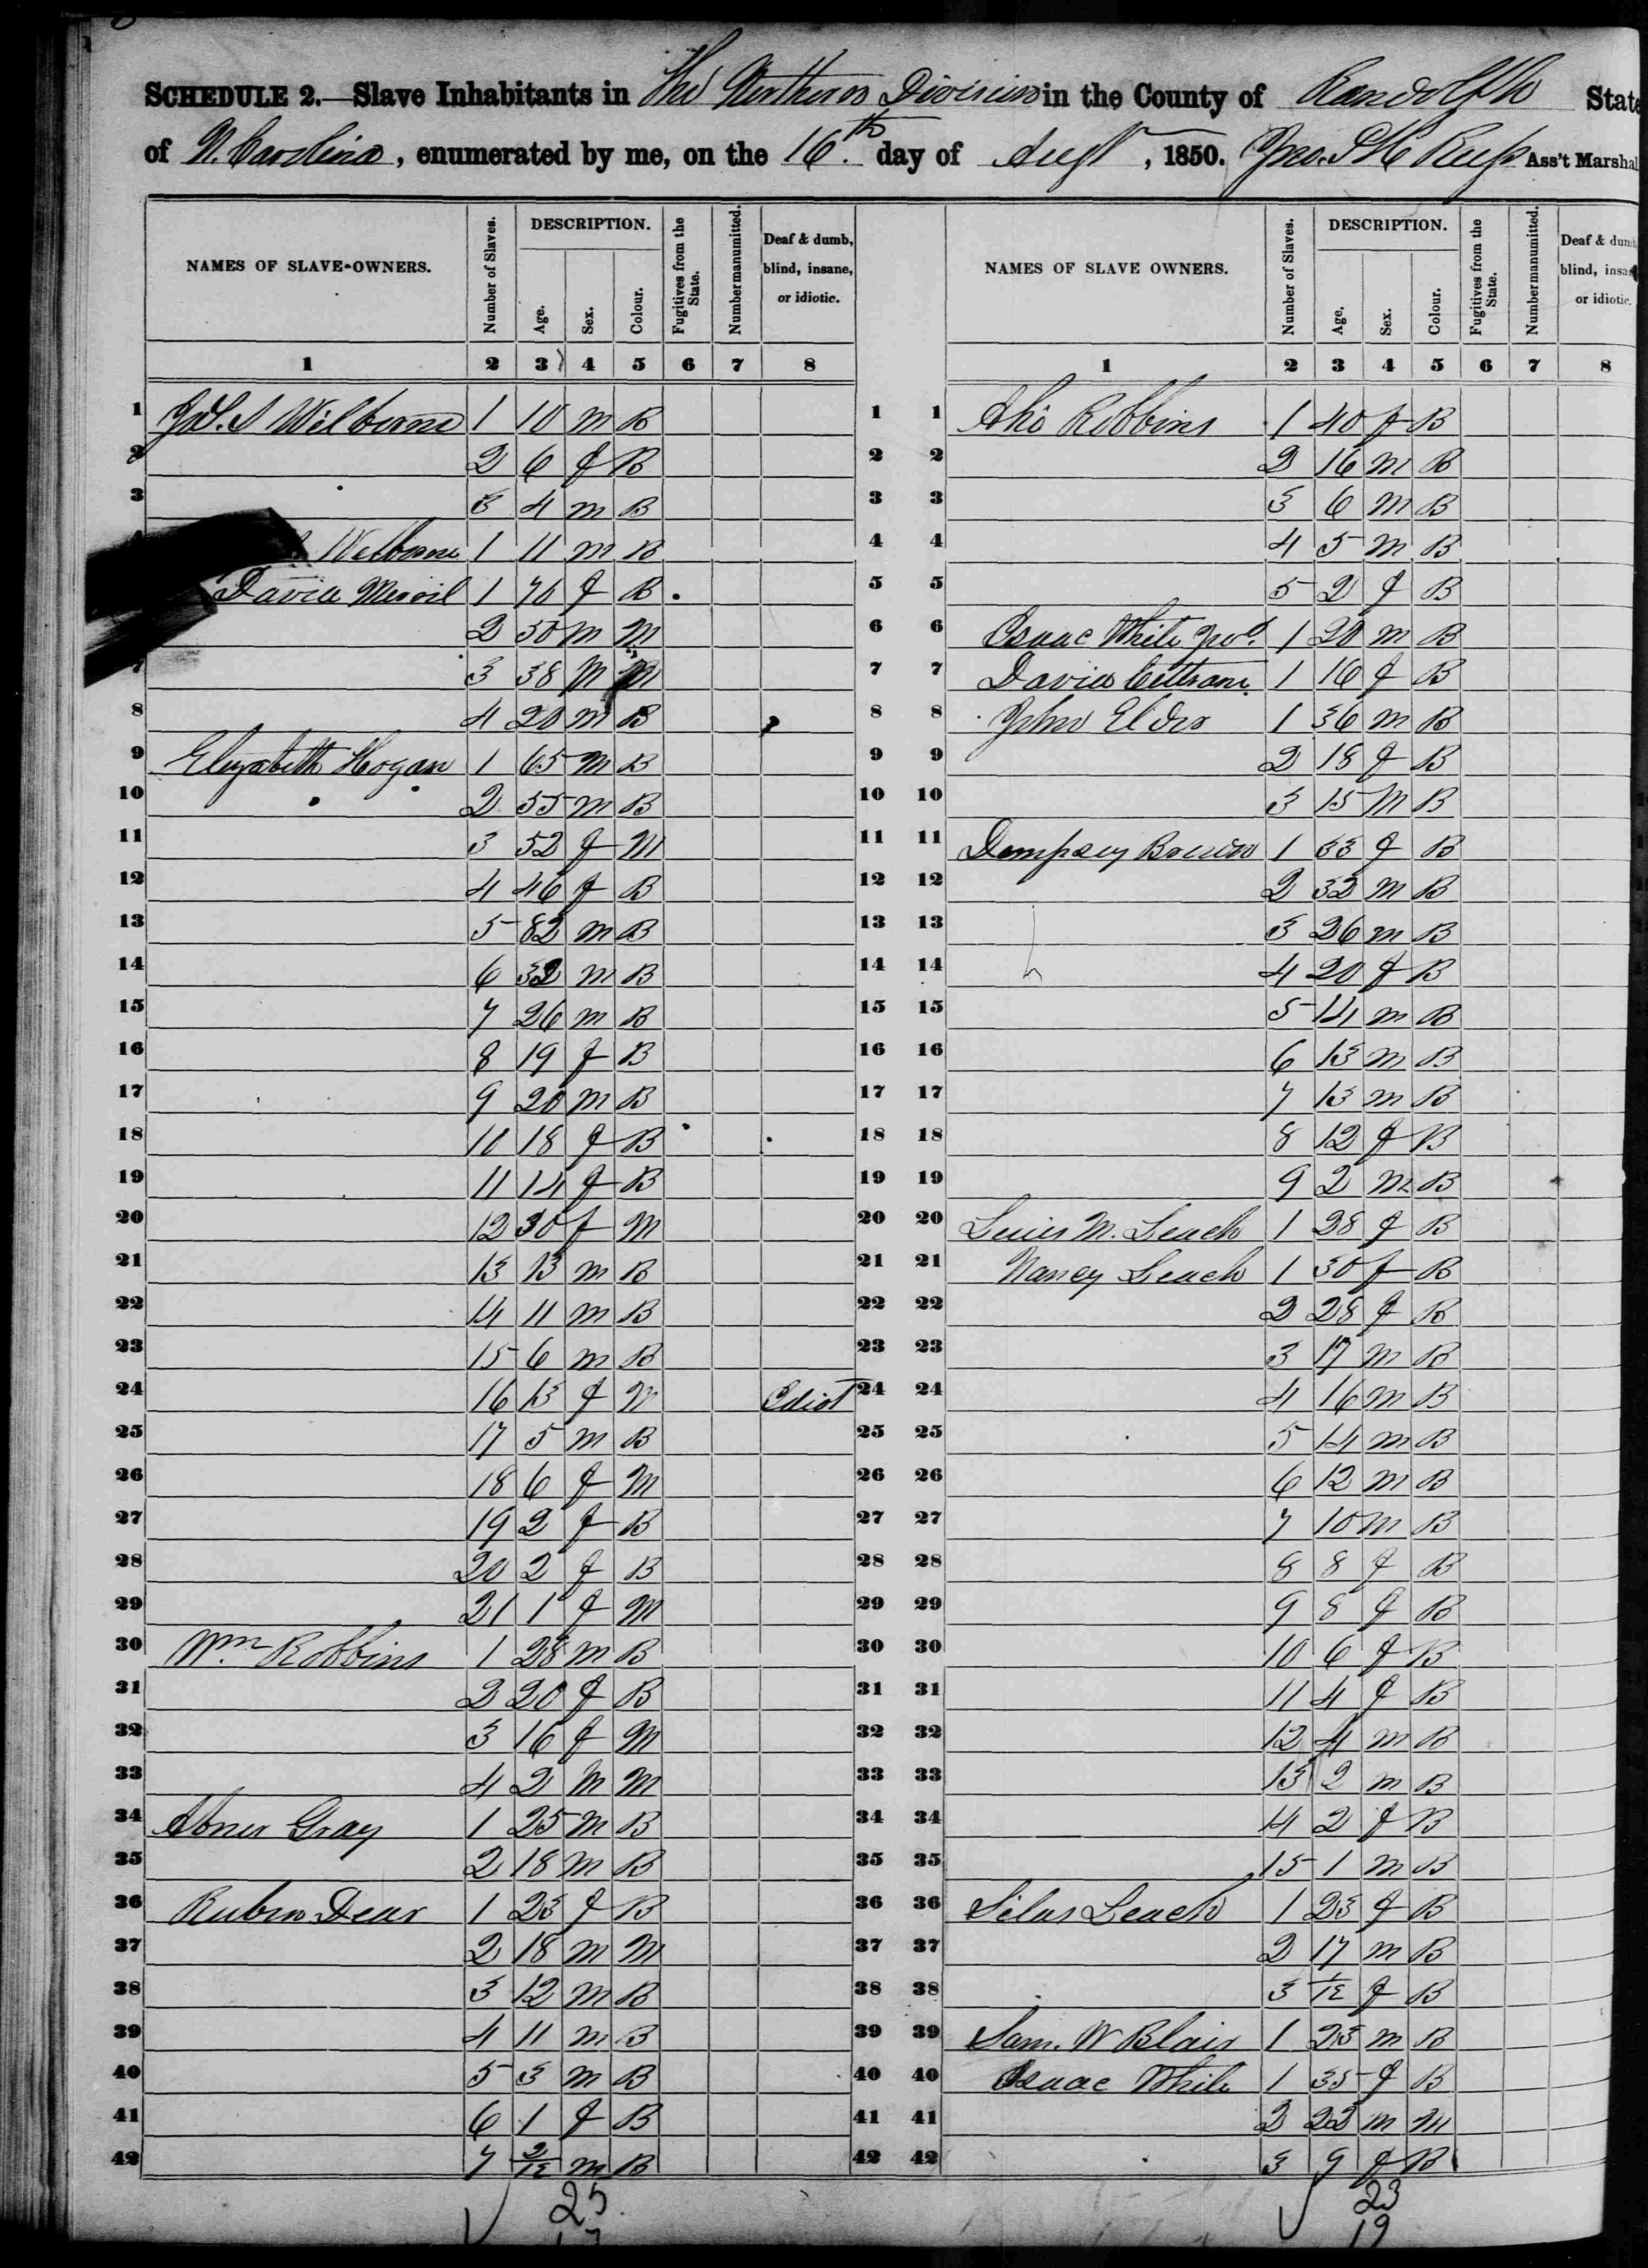 SCHEDULE 2.—Slave Inhabitants in The Northern Division in the County of Randolph State
of N. Carolina, enumerated by me, on the 16th day of Augt, 1850. Jno. Ass't Marshal
NAMES OF SLAVE-OWNERS. Number of Slaves. DESCRIPTION. Age. Sex. Colour. Fugitives from the State. Number manumitted. Deaf & dumb, blind, insane, or idiotic.
NAMES OF SLAVE OWNERS. Number of Slaves. DESCRIPTION. Age. Sex. Colour. Fugitives from the State. Number manumitted. Deaf & dumb, blind, insa or idiotic.
1 2 3 4 5 6 7 8 1 2 3 4 5 6 7 8
1 Wilborne 1 10 m B 1 1 Robbins 1 40 f B
2 2 6 f B 2 2 2 16 m B
3 3 4 m B 3 3 3 6 m B
Welborne 1 11 m B 4 4 4 5 m B
David 1 70 f B 5 5 5 2 f B
2 50 m M 6 6 Isaac White 1 20 m B
7 3 38 m M 7 7 David Coltrane 1 16 f B
8 4 20 m B 8 8 John Elder 1 36 m B
9 Elizabeth Hogan 1 65 m B 9 9 2 18 f B
10 2 55 m B 10 10 3 15 m B
11 3 52 f M 11 11 Dempsey Brown 1 33 f B
12 4 46 f B 12 12 2 32 m B
13 5 82 m B 13 13 3 26 m B
14 6 32 m B 14 14 4 20 f B
15 7 26 m B 15 15 5 14 m B
16 8 19 f B 16 16 6 13 m B
17 9 20 m B 17 17 7 13 m B
18 10 18 f B 18 18 8 12 f B
19 11 14 f B 19 19 9 2 m B
20 12 30 f M 20 20 Lewis M. Leach 1 28 f B
21 13 13 m B 21 21 Nancy Leach 1 30 f B
22 14 11 m B 22 22 2 28 f B
23 15 6 m B 23 23 3 17 m B
24 16 13 f M Idiot 24 24 4 16 m B
25 17 5 m B 25 25 5 14 m B
26 18 6 f M 26 26 6 12 m B
27 19 2 f B 27 27 7 10 m B
28 20 2 f B 28 28 8 8 f B
29 21 1 f M 29 29 9 8 f B
30 Wm Robbins 1 28 m B 30 30 10 6 f B
31 2 20 f B 31 31 11 4 f B
32 3 16 f M 32 32 12 4 m B
33 4 2 m M 33 33 13 2 m B
34 Abner Gray 1 25 m B 34 34 14 2 f B
35 2 18 m B 35 35 15 1 m B
36 Rubin Dear 1 23 f B 36 36 Silas Leach 1 23 f B
37 2 18 m M 37 37 2 17 m B
38 3 12 m B 38 38 3 1/12 f B
39 4 11 m B 39 39 Sam. W Blair 1 23 m B
40 5 3 m B 40 40 Isaac White 1 35 f B
41 6 1 f B 41 41 2 22 m M
42 7 2/12 m B 42 42 3 9 f B
25 23
17 19